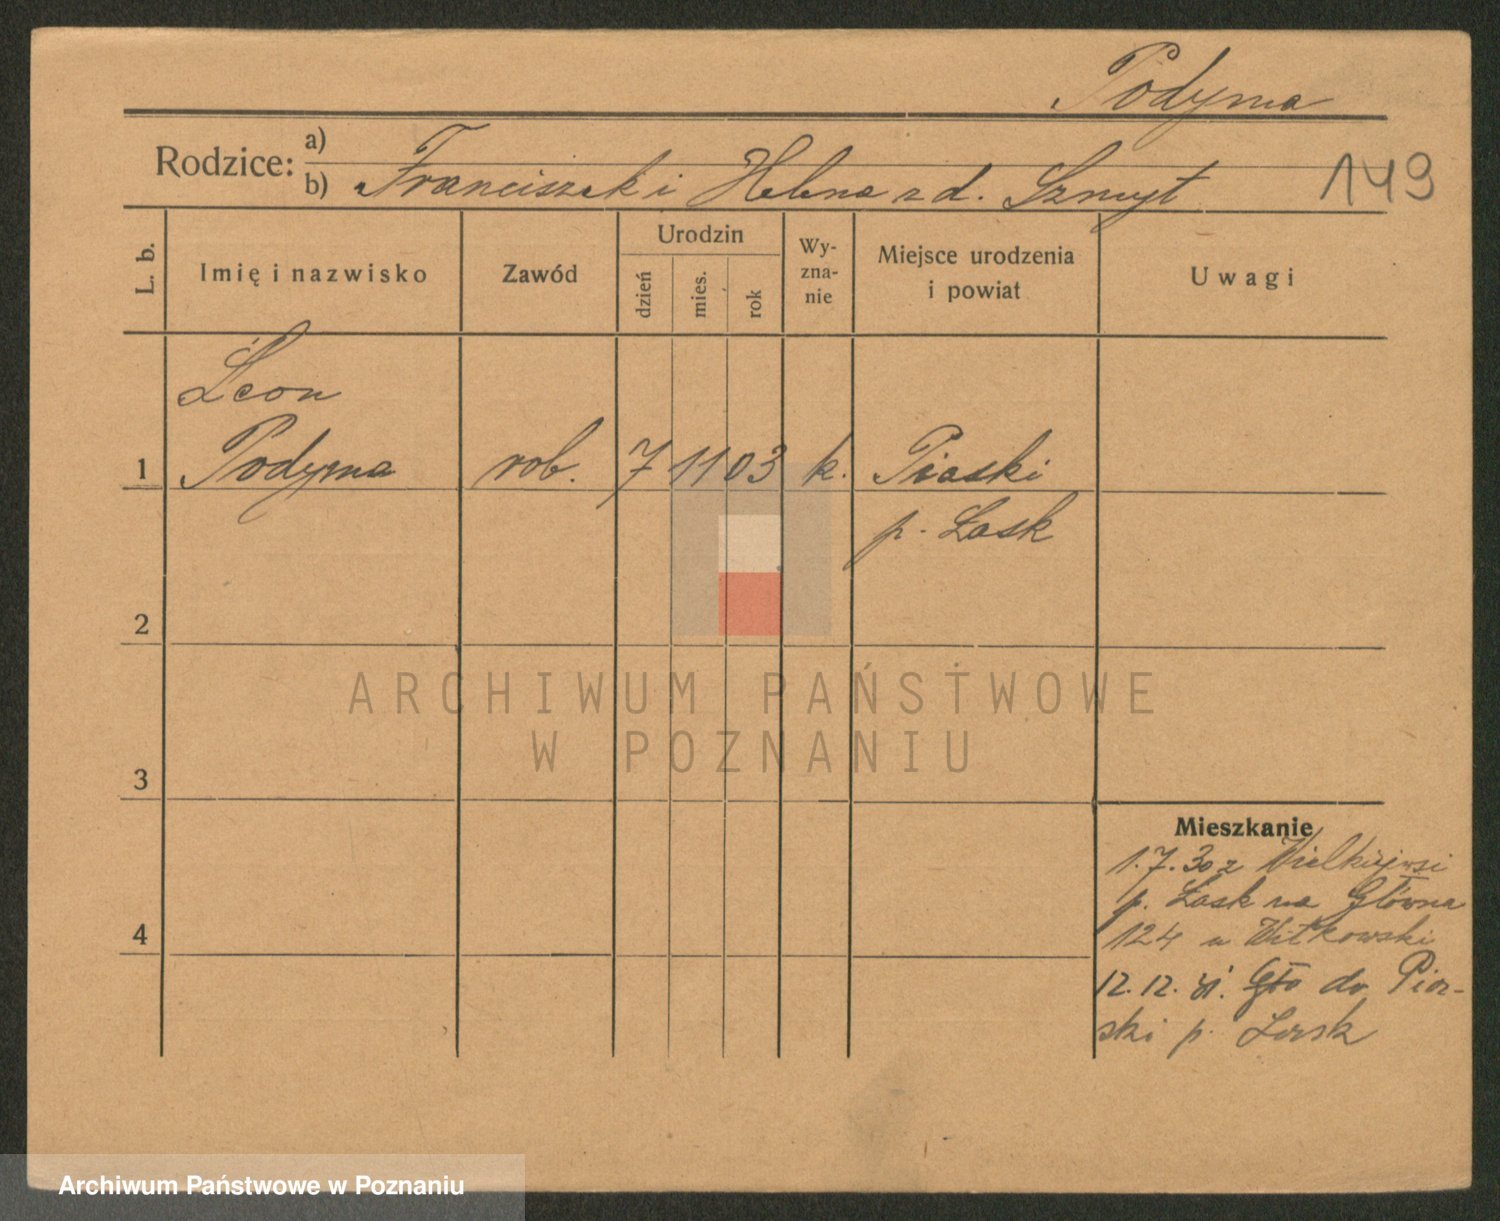 Podyma
Rodzice: a)
b) Franciszek i Helena z d. Szmyt
149
L. b.
Imię i nazwisko
Zawód
Urodzin
dzień
mies.
rok
Wy-
zna-
nie
Miejsce urodzenia
i powiat
Uwagi
Leon
1 Podyma rob. 7 11 03 k. Piaski
p. Łask
2
ARCHIWUM PAŃSTWOWE
W POZNANIU
3
Mieszkanie
1.7.30 z Wielkiejwsi
p. Łask na Główna
4 124 u Witkowski
12.12. do Pias-
ski p. Łask
Archiwum Państwowe w Poznaniu